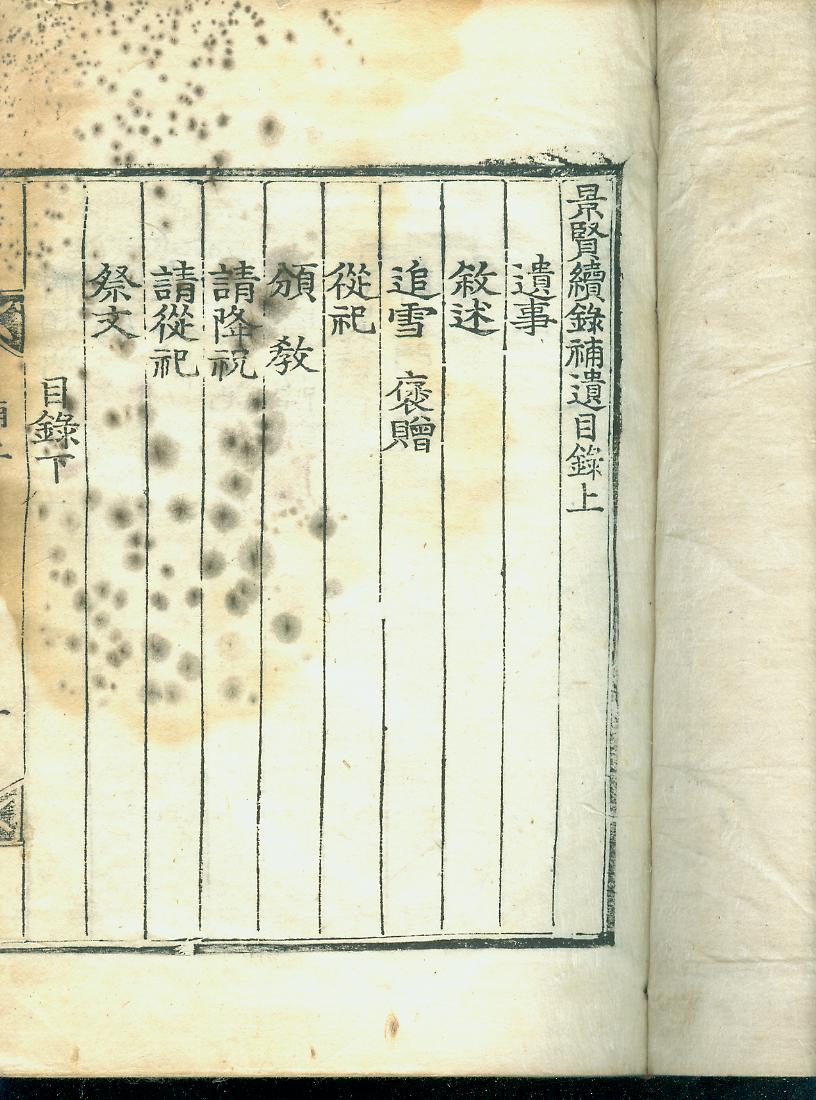 景賢續錄補遺目錄上
遺事
敘述
追雪 褒贈
從祀
頒 敎
請降祝
請從祀
祭文
目錄下